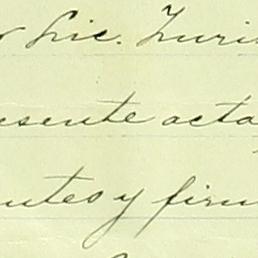 r Lic. Zuris
esente acta
ntes y firm